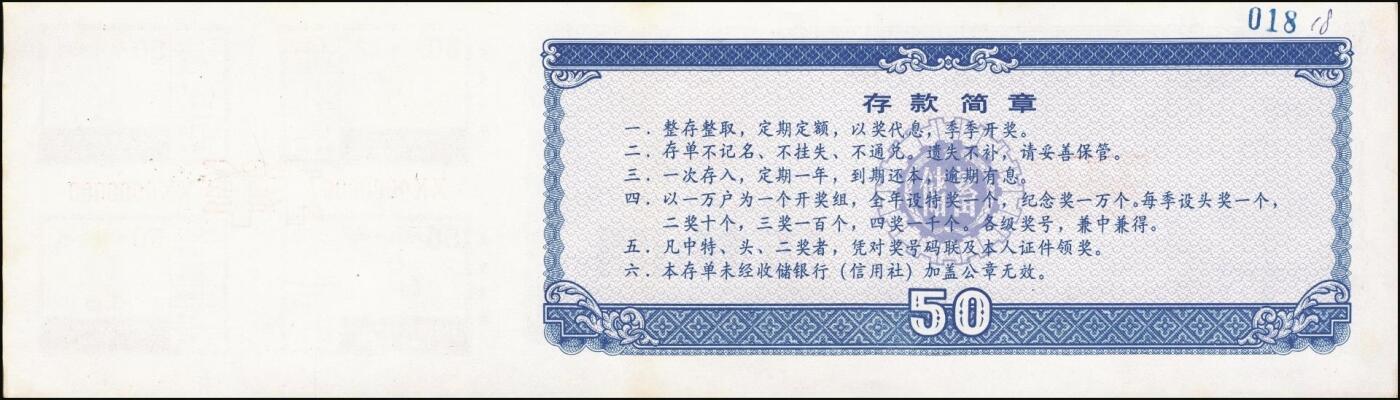 018 18
存款简章
一．整存整取，定期定额，以奖代息，季季开奖。
二．存单不记名、不挂失、不通兑。遗失不补，请妥善保管。
三．一次存入，定期一年，到期还本，逾期有息。
四．以一万户为一个开奖组，全年设特奖一个，纪念奖一万个。每季设头奖一个，
二奖十个，三奖一百个，四奖一千个。各级奖号，兼中兼得。
五．凡中特、头、二奖者，凭对奖号码联及本人证件领奖。
六．本存单未经收储银行（信用社）加盖公章无效。
储蓄
50